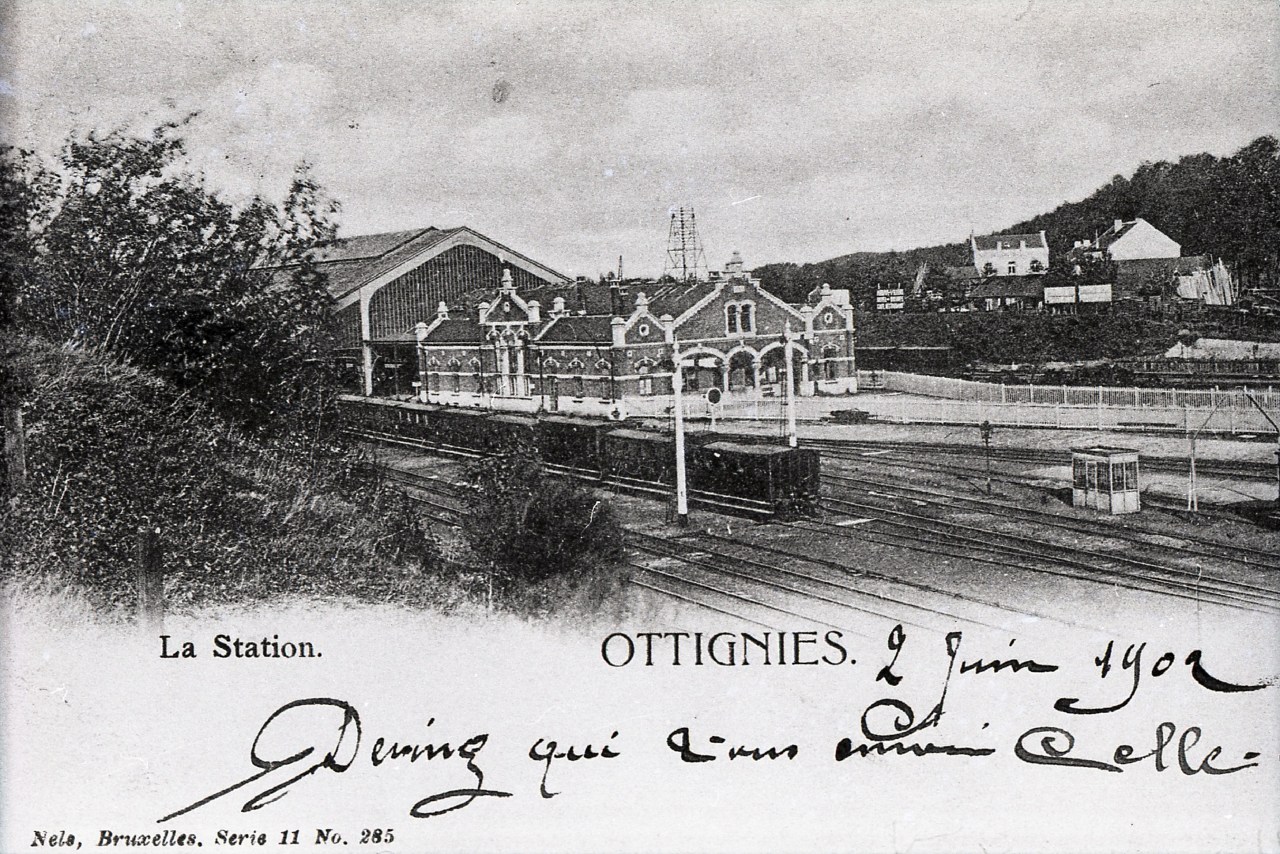 La Station.
OTTIGNIES. 2 Juin 1902
Devinez qui vous envoie Celle-
Nels, Bruxelles. Serie 11 No. 285